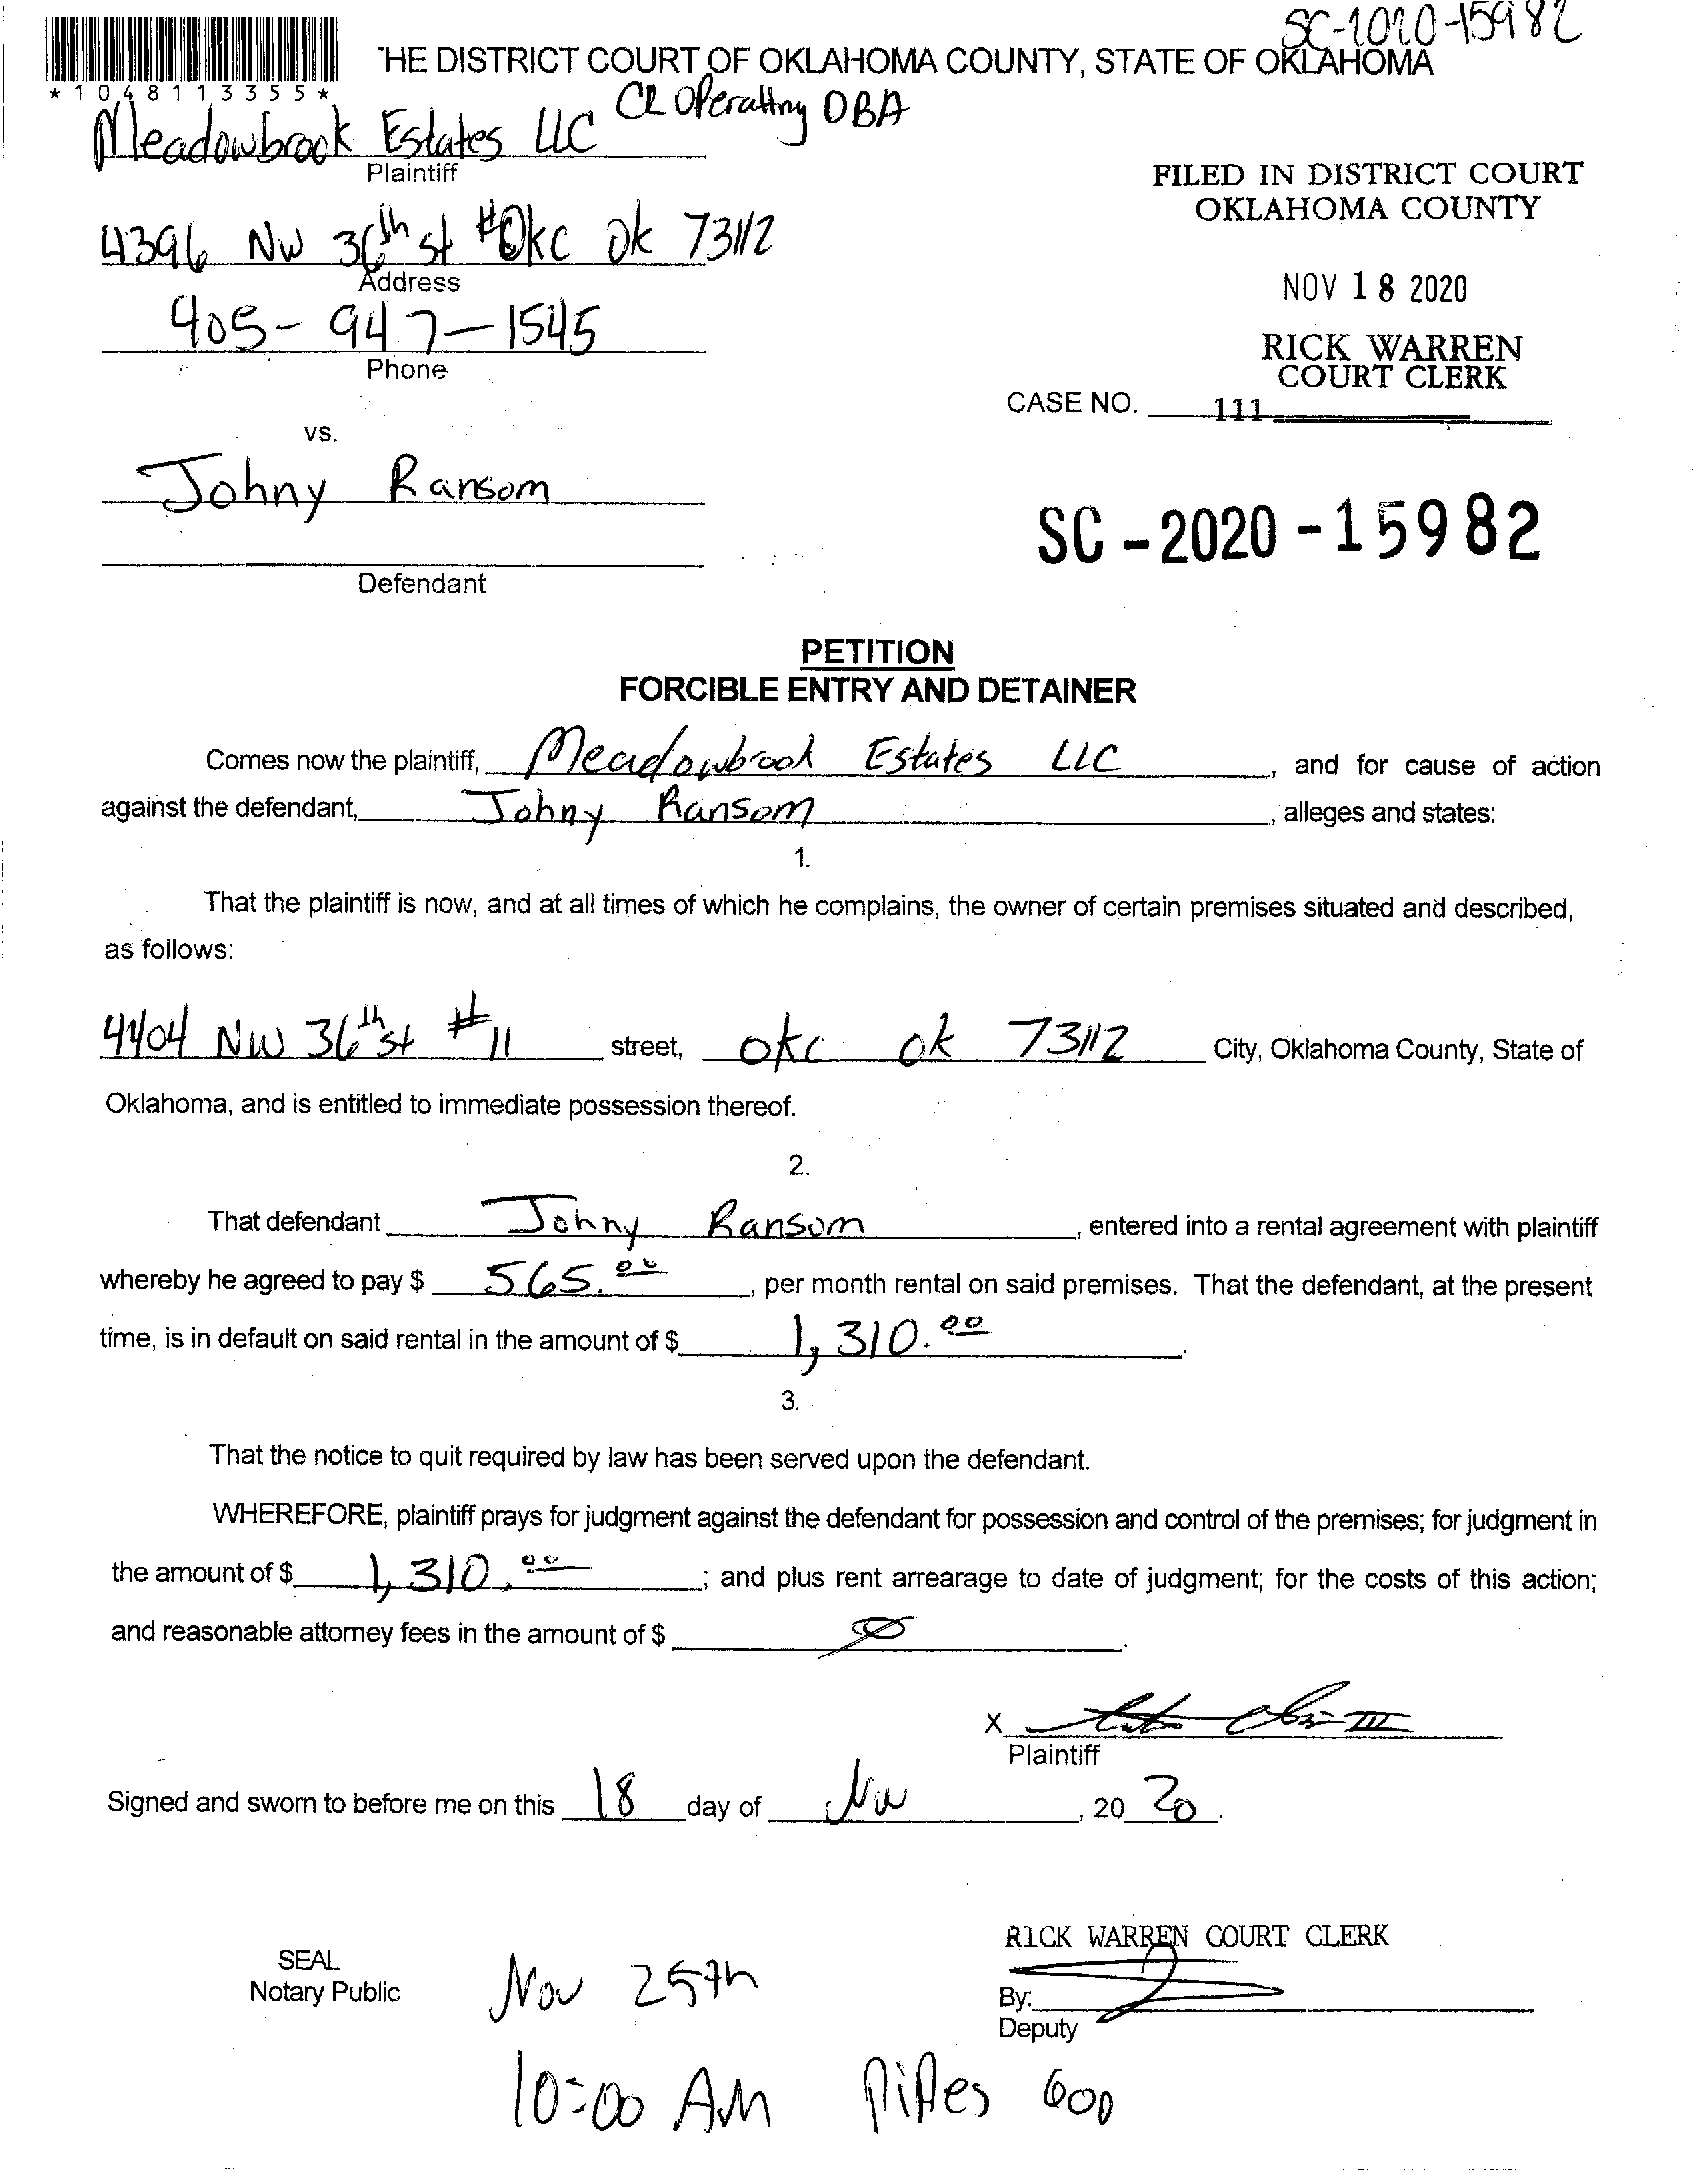 SC-2020-15982
THE DISTRICT COURT OF OKLAHOMA COUNTY, STATE OF OKLAHOMA
*1048113355*
CL Operating DBA
Meadowbrook Estates LLC
Plaintiff
FILED IN DISTRICT COURT
OKLAHOMA COUNTY
4396 NW 36th st # Okc ok 73112
Address
NOV 18 2020
405-947-1545
Phone
RICK WARREN
COURT CLERK
CASE NO. 111
vs.
Johny Ransom
SC-2020-15982
Defendant
PETITION
FORCIBLE ENTRY AND DETAINER
Comes now the plaintiff, Meadowbrook Estates LLC, and for cause of action
against the defendant, Johny Ransom, alleges and states:
1.
That the plaintiff is now, and at all times of which he complains, the owner of certain premises situated and described,
as follows:
4404 NW 36th st #11 street, okc ok 73112 City, Oklahoma County, State of
Oklahoma, and is entitled to immediate possession thereof.
2.
That defendant Johny Ransom, entered into a rental agreement with plaintiff
whereby he agreed to pay $ 565.00, per month rental on said premises. That the defendant, at the present
time, is in default on said rental in the amount of $ 1,310.00.
3.
That the notice to quit required by law has been served upon the defendant.
WHEREFORE, plaintiff prays for judgment against the defendant for possession and control of the premises; for judgment in
the amount of $ 1,310.00; and plus rent arrearage to date of judgment; for the costs of this action;
and reasonable attorney fees in the amount of $ Ø.
X
Plaintiff
Signed and sworn to before me on this 18 day of Nov, 20 20.
RICK WARREN COURT CLERK
SEAL
Notary Public
Nov 25th
By:
Deputy
10:00 AM Pipes 600